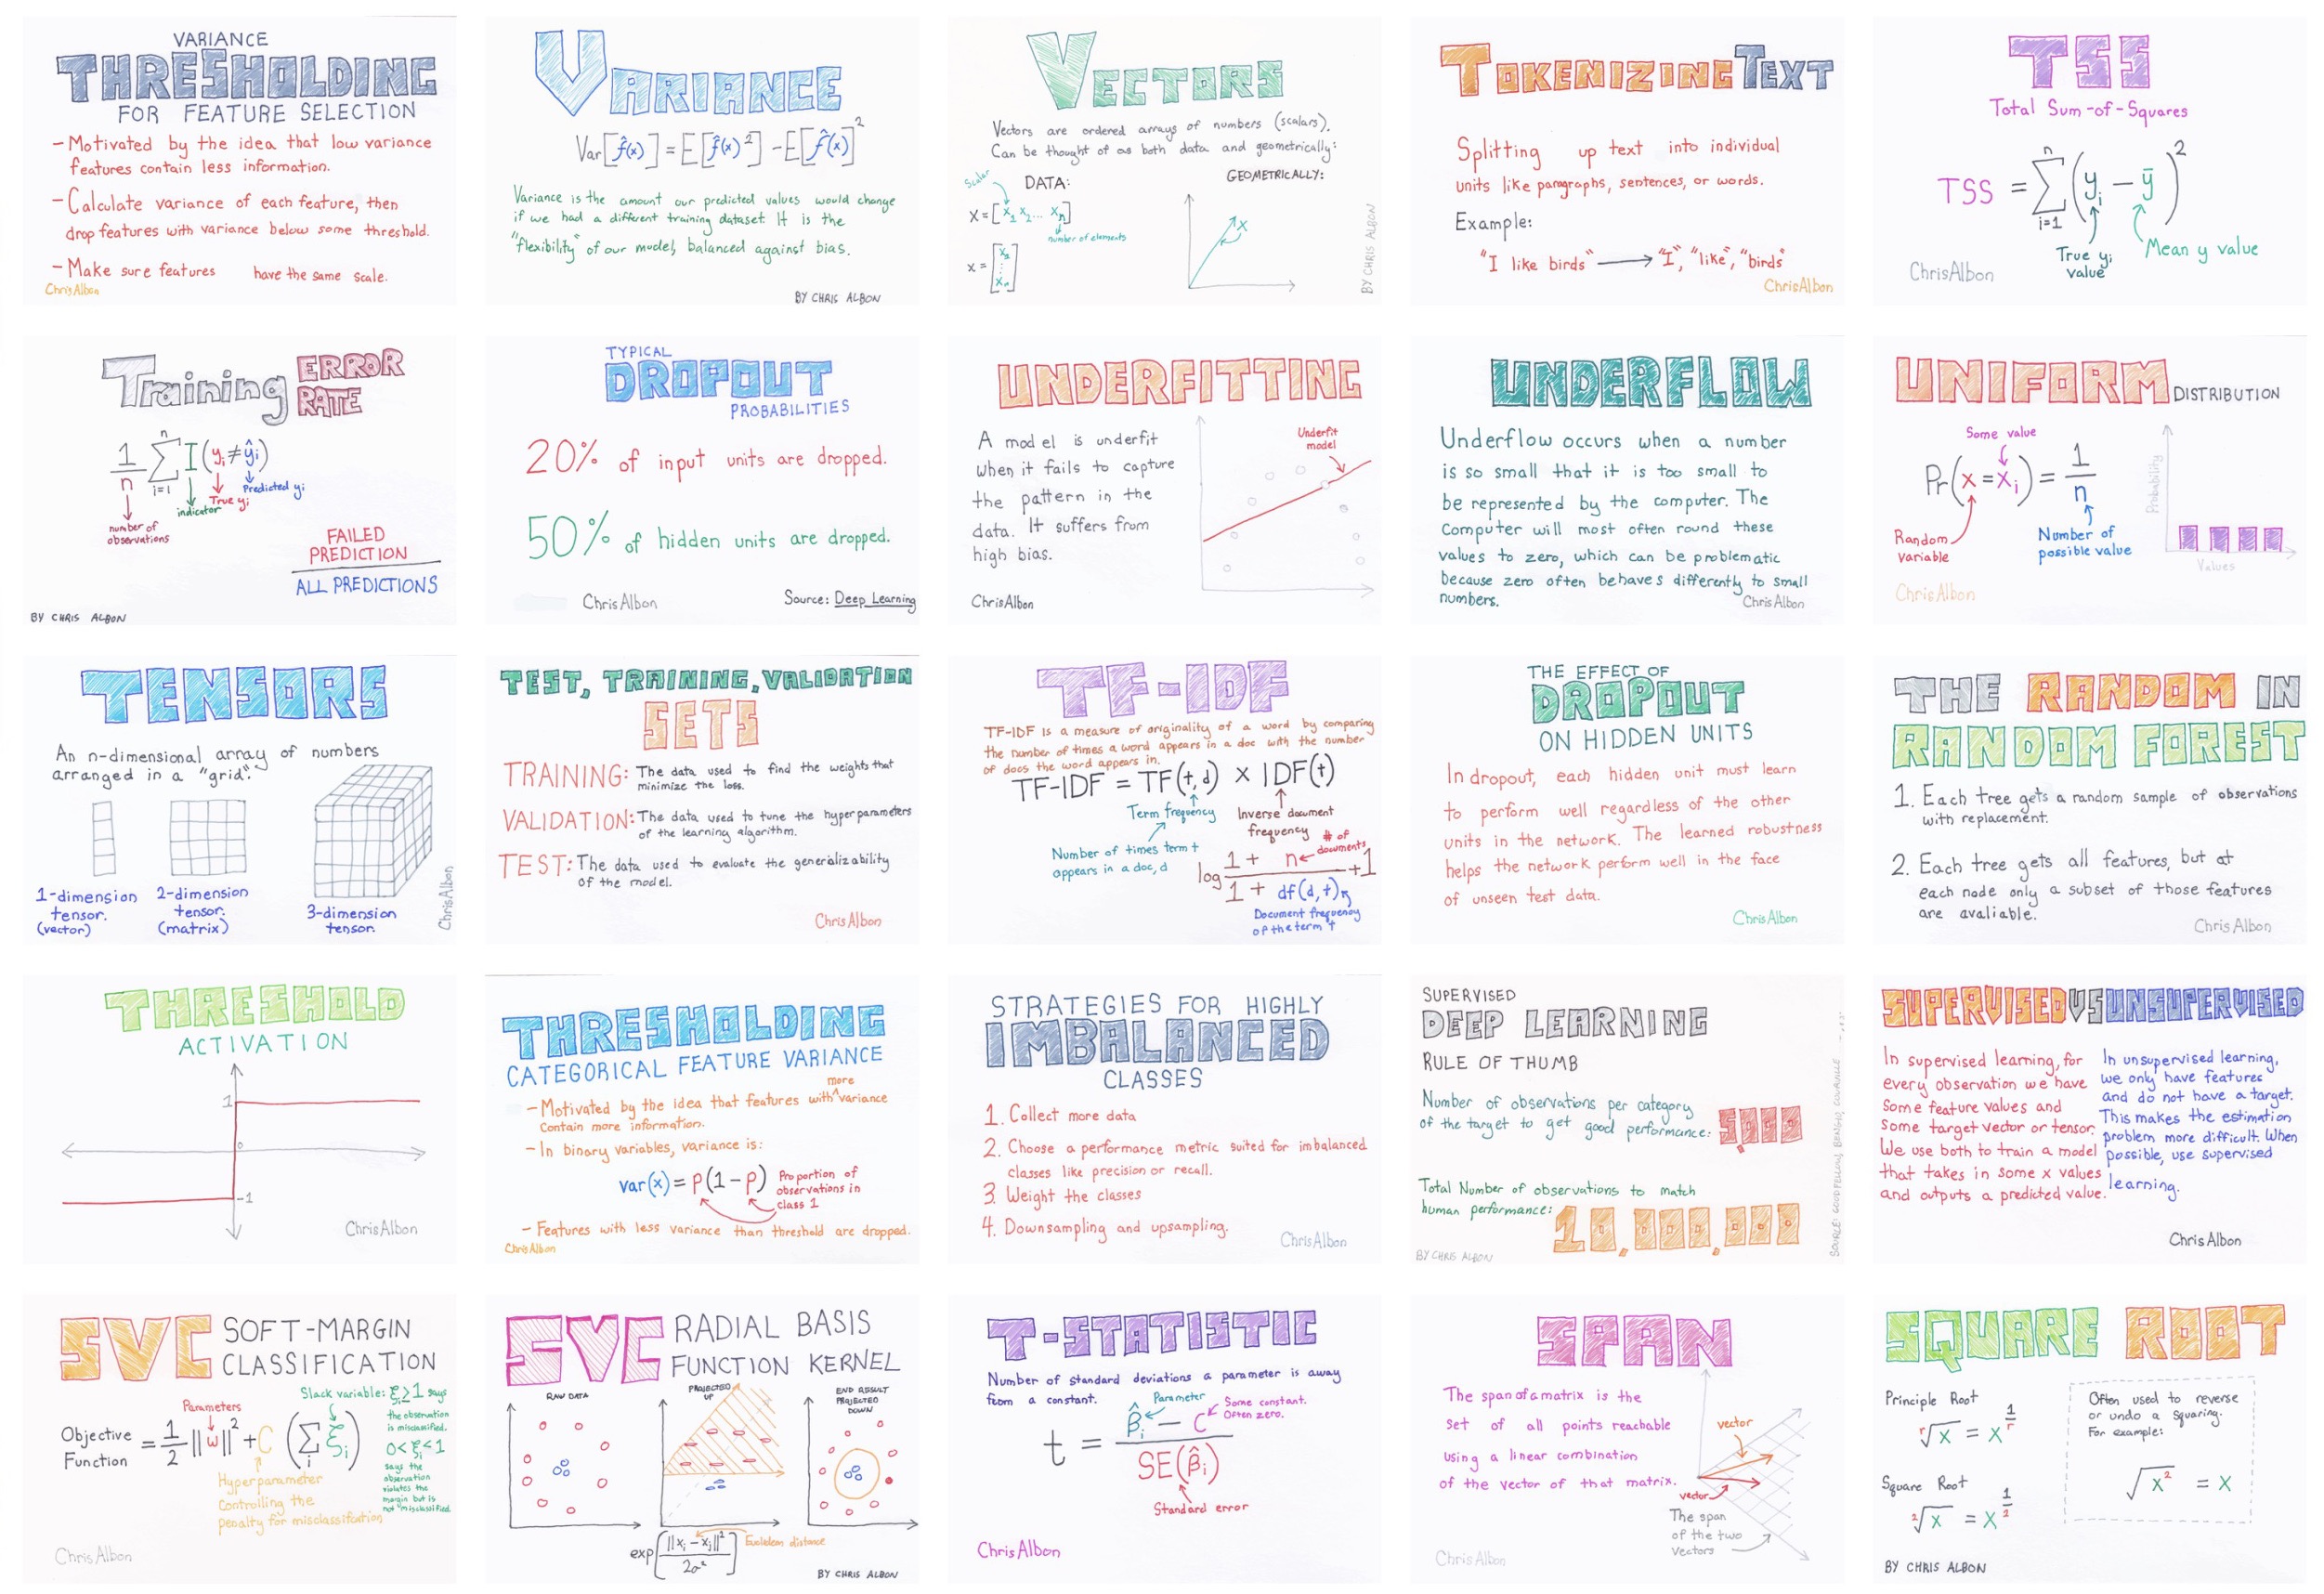 VARIANCE
THRESHOLDING
FOR FEATURE SELECTION
- Motivated by the idea that low variance
features contain less information.
- Calculate variance of each feature, then
drop features with variance below some threshold.
- Make sure features have the same scale.
ChrisAlbon
VARIANCE
Var[f̂(x)] = E[f̂(x)²] - E[f̂(x)]²
Variance is the amount our predicted values would change
if we had a different training dataset. It is the
"flexibility" of our model, balanced against bias.
BY CHRIS ALBON
VECTORS
Vectors are ordered arrays of numbers (scalars).
Can be thought of as both data and geometrically:
Scalar
DATA:
GEOMETRICALLY:
X = [x₁ x₂ ... xₙ]
number of elements
X = [x₁ ⋮ xₙ]
X
BY CHRIS ALBON
TOKENIZING TEXT
Splitting up text into individual
units like paragraphs, sentences, or words.
Example:
"I like birds" → "I", "like", "birds"
ChrisAlbon
TSS
Total Sum-of-Squares
TSS = Σ (yᵢ - ȳ)²
n
i=1
True yᵢ
value
Mean y value
ChrisAlbon
Training ERROR
RATE
1/n Σ I(yᵢ ≠ ŷᵢ)
n
i=1
Predicted yᵢ
True yᵢ
indicator
number of
observations
FAILED
PREDICTION
ALL PREDICTIONS
BY CHRIS ALBON
TYPICAL
DROPOUT
PROBABILITIES
20% of input units are dropped.
50% of hidden units are dropped.
ChrisAlbon
Source: Deep Learning
UNDERFITTING
A model is underfit
when it fails to capture
the pattern in the
data. It suffers from
high bias.
Underfit
model
ChrisAlbon
UNDERFLOW
Underflow occurs when a number
is so small that it is too small to
be represented by the computer. The
Computer will most often round these
values to zero, which can be problematic
because zero often behaves differently to small
numbers.
ChrisAlbon
UNIFORM DISTRIBUTION
Some value
Pr(x = xᵢ) = 1/n
Random
variable
Number of
possible value
Probability
Values
ChrisAlbon
TENSORS
An n-dimensional array of numbers
arranged in a "grid".
1-dimension
tensor.
(vector)
2-dimension
tensor.
(matrix)
3-dimension
tensor.
ChrisAlbon
TEST, TRAINING, VALIDATION
SETS
TRAINING: The data used to find the weights that
minimize the loss.
VALIDATION: The data used to tune the hyperparameters
of the learning algorithm.
TEST: The data used to evaluate the generalizability
of the model.
Chris Albon
TF-IDF
TF-IDF is a measure of originality of a word by comparing
the number of times a word appears in a doc with the number
of docs the word appears in.
TF-IDF = TF(t,d) × IDF(t)
Term frequency
Inverse document
frequency
Number of times term t
appears in a doc, d
# of
documents
log (1 + n)/(1 + df(d,t)) + 1
Document frequency
of the term t
THE EFFECT OF
DROPOUT
ON HIDDEN UNITS
In dropout, each hidden unit must learn
to perform well regardless of the other
units in the network. The learned robustness
helps the network perform well in the face
of unseen test data.
Chris Albon
THE RANDOM IN
RANDOM FOREST
1. Each tree gets a random sample of observations
with replacement.
2. Each tree gets all features, but at
each node only a subset of those features
are avaliable.
Chris Albon
THRESHOLD
ACTIVATION
1
0
-1
ChrisAlbon
THRESHOLDING
CATEGORICAL FEATURE VARIANCE
more
- Motivated by the idea that features with ^ variance
Contain more information.
- In binary variables, variance is:
var(x) = p(1-p)
Proportion of
observations in
class 1
- Features with less variance than threshold are dropped.
Chris Albon
STRATEGIES FOR HIGHLY
IMBALANCED
CLASSES
1. Collect more data
2. Choose a performance metric suited for imbalanced
classes like precision or recall.
3. Weight the classes
4. Downsampling and upsampling.
ChrisAlbon
SUPERVISED
DEEP LEARNING
RULE OF THUMB
Number of observations per category
of the target to get good performance: 5,000
Total Number of observations to match
human performance: 10,000,000
BY CHRIS ALBON
SOURCE: GOODFELLOW, BENGIO, COURVILLE
SUPERVISED VS UNSUPERVISED
In supervised learning, for
every observation we have
Some feature values and
some target vector or tensor.
We use both to train a model
that takes in some x values
and outputs a predicted value.
In unsupervised learning,
we only have features
and do not have a target.
This makes the estimation
problem more difficult. When
possible, use supervised
learning.
Chris Albon
SVC SOFT-MARGIN
CLASSIFICATION
Slack variable: ξᵢ≥1 says
the observation
is misclassified.
0<ξᵢ<1
says the
observation
violates the
margin but is
not misclassified.
Parameters
Objective
Function = 1/2 ||w||² + C (Σ ξᵢ)
i
Hyperparameter
Controlling the
penalty for misclassification
Chris Albon
SVC RADIAL BASIS
FUNCTION KERNEL
RAW DATA
PROJECTED
UP
END RESULT
PROJECTED
DOWN
exp[||xᵢ - xⱼ||²/2σ²]
Euclidean distance
BY CHRIS ALBON
T-STATISTIC
Number of standard deviations a parameter is away
from a constant.
Parameter
Some constant.
Often zero.
t = (β̂ᵢ - C)/SE(β̂ᵢ)
Standard error
Chris Albon
SPAN
The span of a matrix is the
set of all points reachable
using a linear combination
of the vector of that matrix.
vector
vector
The span
of the two
vectors
Chris Albon
SQUARE ROOT
Principle Root
ʳ√x = x^(1/r)
Square Root
²√x = x^(1/2)
Often used to reverse
or undo a squaring.
For example:
√x² = x
BY CHRIS ALBON